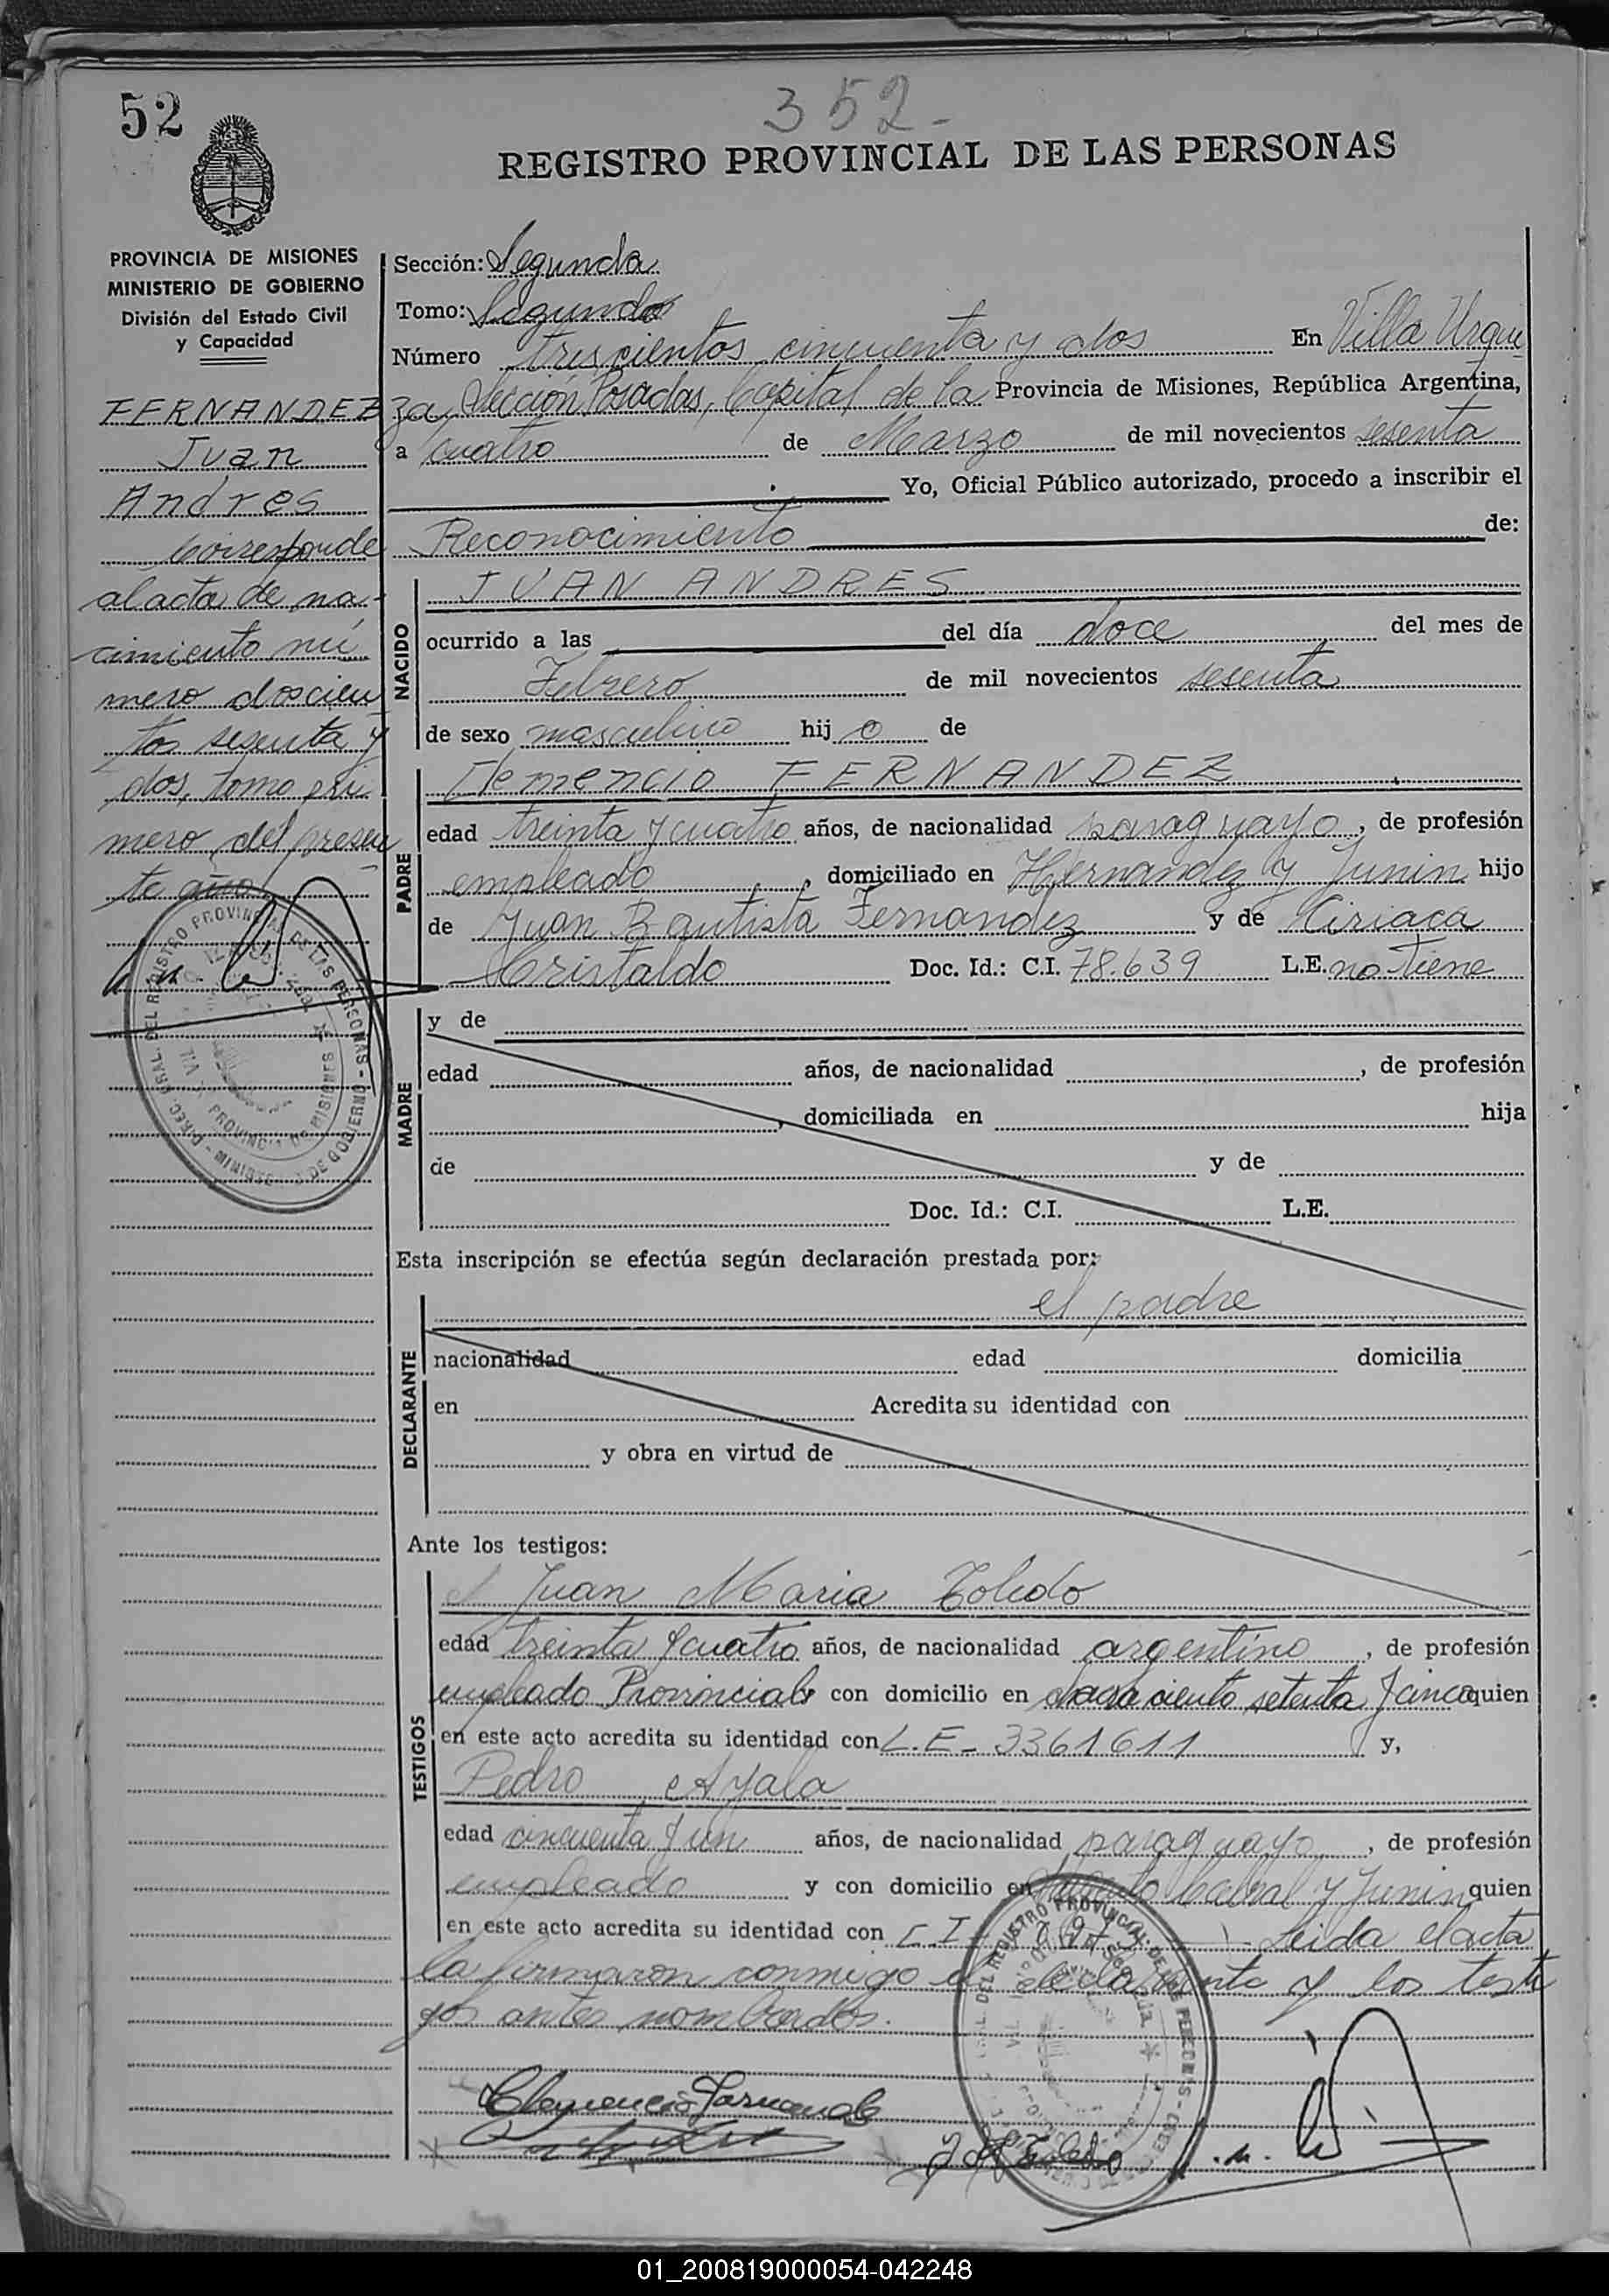 52
352-
REGISTRO PROVINCIAL DE LAS PERSONAS
PROVINCIA DE MISIONES
MINISTERIO DE GOBIERNO
División del Estado Civil
y Capacidad
FERNANDEZ
Juan
Andres
Corresponde
al acta de na-
cimiento nú
mero doscien
tos sesenta y
dos, tomo pri
mero, del presen
te año
Sección: Segunda
Tomo: Segundo
Número trescientos cincuenta y dos En Villa Urqui
za, Sección Posadas, Capital de la Provincia de Misiones, República Argentina,
a cuatro de Marzo de mil novecientos sesenta
Yo, Oficial Público autorizado, procedo a inscribir el
Reconocimiento de:
NACIDO
JUAN ANDRES
ocurrido a las del día doce del mes de
Febrero de mil novecientos sesenta
de sexo masculino hij o de
PADRE
Clemencio FERNANDEZ
edad treinta y cuatro años, de nacionalidad paraguayo, de profesión
empleado, domiciliado en Hernandez y Junin hijo
de Juan Bautista Fernandez y de Ciriaca
Cristaldo Doc. Id.: C.I. 78.639 L.E. no tiene
MADRE
y de
edad años, de nacionalidad , de profesión
, domiciliada en hija
de y de
Doc. Id.: C.I. L.E.
Esta inscripción se efectúa según declaración prestada por:
el padre
DECLARANTE
nacionalidad edad domicilia
en Acredita su identidad con
y obra en virtud de
Ante los testigos:
TESTIGOS
Juan Maria Toledo
edad treinta y cuatro años, de nacionalidad argentino, de profesión
empleado Provincial y con domicilio en ciento setenta y cinco quien
en este acto acredita su identidad con L.E- 3361611 y,
Pedro Ayala
edad cincuenta y un años, de nacionalidad paraguayo, de profesión
empleado y con domicilio en Cabral y Junin quien
en este acto acredita su identidad con C.I. Leida el acta
la firmaron conmigo el declarante y los testi
gos antes nombrados.
Clemencio Fernandez
J M Toledo
01_200819000054-042248